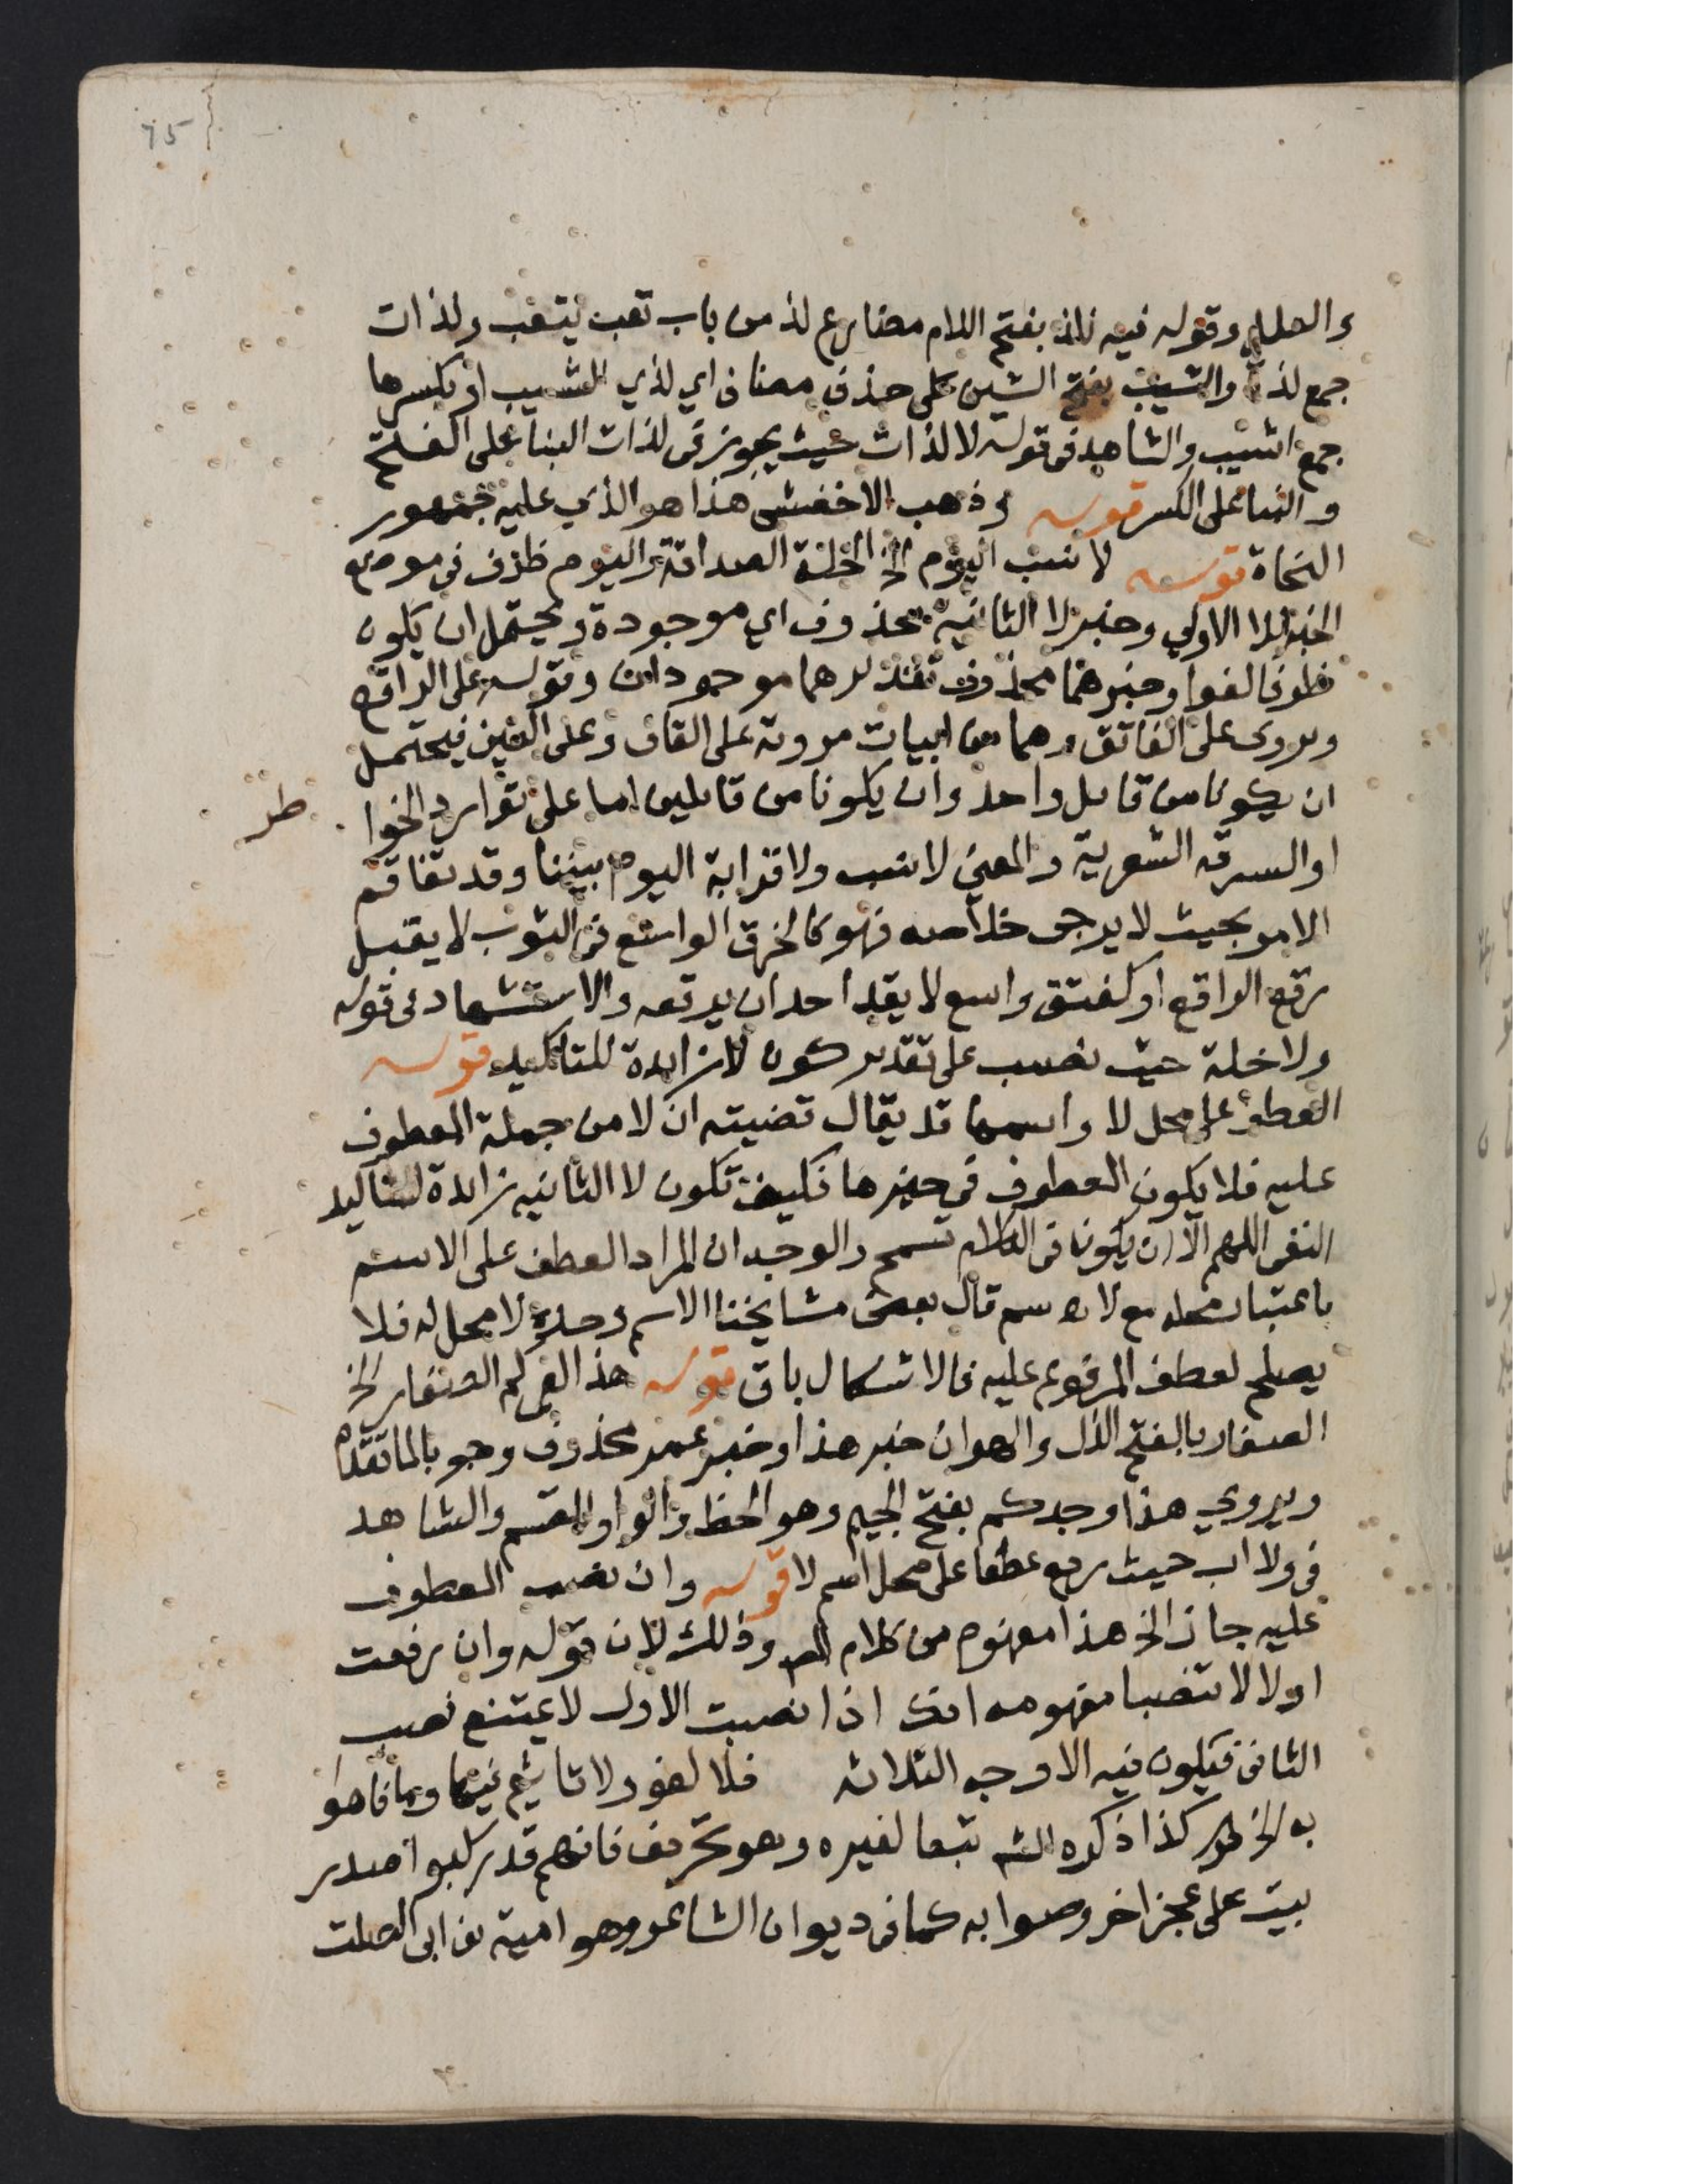 75
والعلل وقوله فيه نلذ بفتح اللام مضارع لذ من باب تعب يتعب ولذات
جمع لذة والشيب بفتح الشين على حذف مضاف اي لذي الشيب او بكسرها
جمع اشيب والشاهد في قوله لا لذات حيث يجوز في لذات البنا على الفتح
والبنا على الكسر قوله وذهب الاخفش هذا هو الذي عليه جمهور
النحاة قوله لا نسب اليوم الخ الخلة الصداقة واليوم ظرف في موضع
الخبر للا الاولي وخبر لا الثانية محذوف اي موجودة ويحتمل ان يكون
ظرفا لغوا وخبرهما محذوف تقديرهما موجودان وقوله على الراقع
ويروى على الفاتق وهما من ابيات مروية على القاف وعلى العين فيحتمل
ان يكونا من قايل واحد وان يكونا من قايلين اما على توارد الخوا
طر
او السرقه الشعرية والمعني لا نسب ولا قرابة اليوم بيننا وقد تفاقم
الامر بحيث لا يرجى خلاصه فهو كالخرق الواسع في الثوب لا يقبل
رقع الراقع او كفتق واسع لا يقدر احد ان يرتقه والاستشهاد في قوله
ولا خلة حيث نصب على تقدير كون لا زايدة للتاكيد قوله
العطف على محل لا واسمها قد يقال قضيته ان لا من جملة المعطوف
عليه فلا يكون المعطوف في حيزها فكيف تكون لا الثانيه زايدة لتاكيد
النفي اللهم الا ان يكونا في الكلام تسمح والوجه ان المراد العطف على الاسم
باعتبار محله مع لا الاسم قال بعض مشايخنا الاسم وحده لا محل له فلا
يصلح لعطف المرفوع عليه فالاشكال باق قوله هذا لعمركم الصغار الخ
الصغار بالفتح الذل والهوان خبر هذا وخبر عمر محذوف وجوبا لما تقدم
ويروي هذا وجدكم بفتح الجيم وهو الحظ والواو للقسم والشاهد
في ولا اب حيث رفع عطفا على محل اسم لا قوله وان نصب المعطوف
عليه جاز الخ هذا مفهوم من كلام المص وذلك لان قوله وان رفعت
اولا لا تنصبا مفهومه انك اذا نصبت الاول لا يمتنع نصب
الثاني فيكون فيه الاوجه الثلاثه فلا لغو ولا تاثيم فيها وما فاهوا
به الخ كذا ذكره الش تبعا لغيره وهو تحريف فانهم قد ركبوا صدر
بيت على عجز اخر وصوابه كما في ديوان الشاعر وهو امية بن ابي الصلت